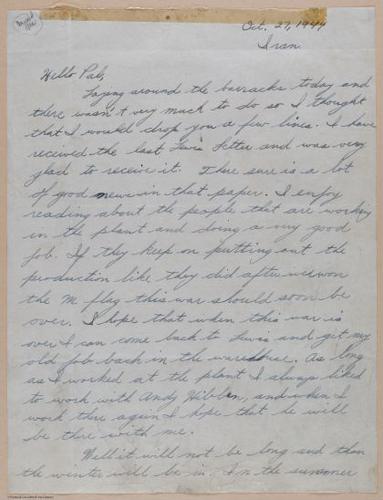 Oct. 27, 1944
Iran.
Hello Pal,
Laying around the barracks today and
there wasn't very much to do so I thought
that I would drop you a few lines. I have
received the last Lewis Letter and was very
glad to receive it. There sure is a lot
of good news in that paper. I enjoy
reading about the people that are working
in the plant and doing a very good
job. If they keep on putting out the
production like they did after we won
the M flag this war should soon be
over. I hope that when this war is
over I can come back to Lewis and get my
old job back in the warehouse. As long
as I worked at the plant I always liked
to work with Andy Hibben, and when I
work there again I hope that he will
be there with me.
Well it will not be long and then
the winter will be in. In the summer